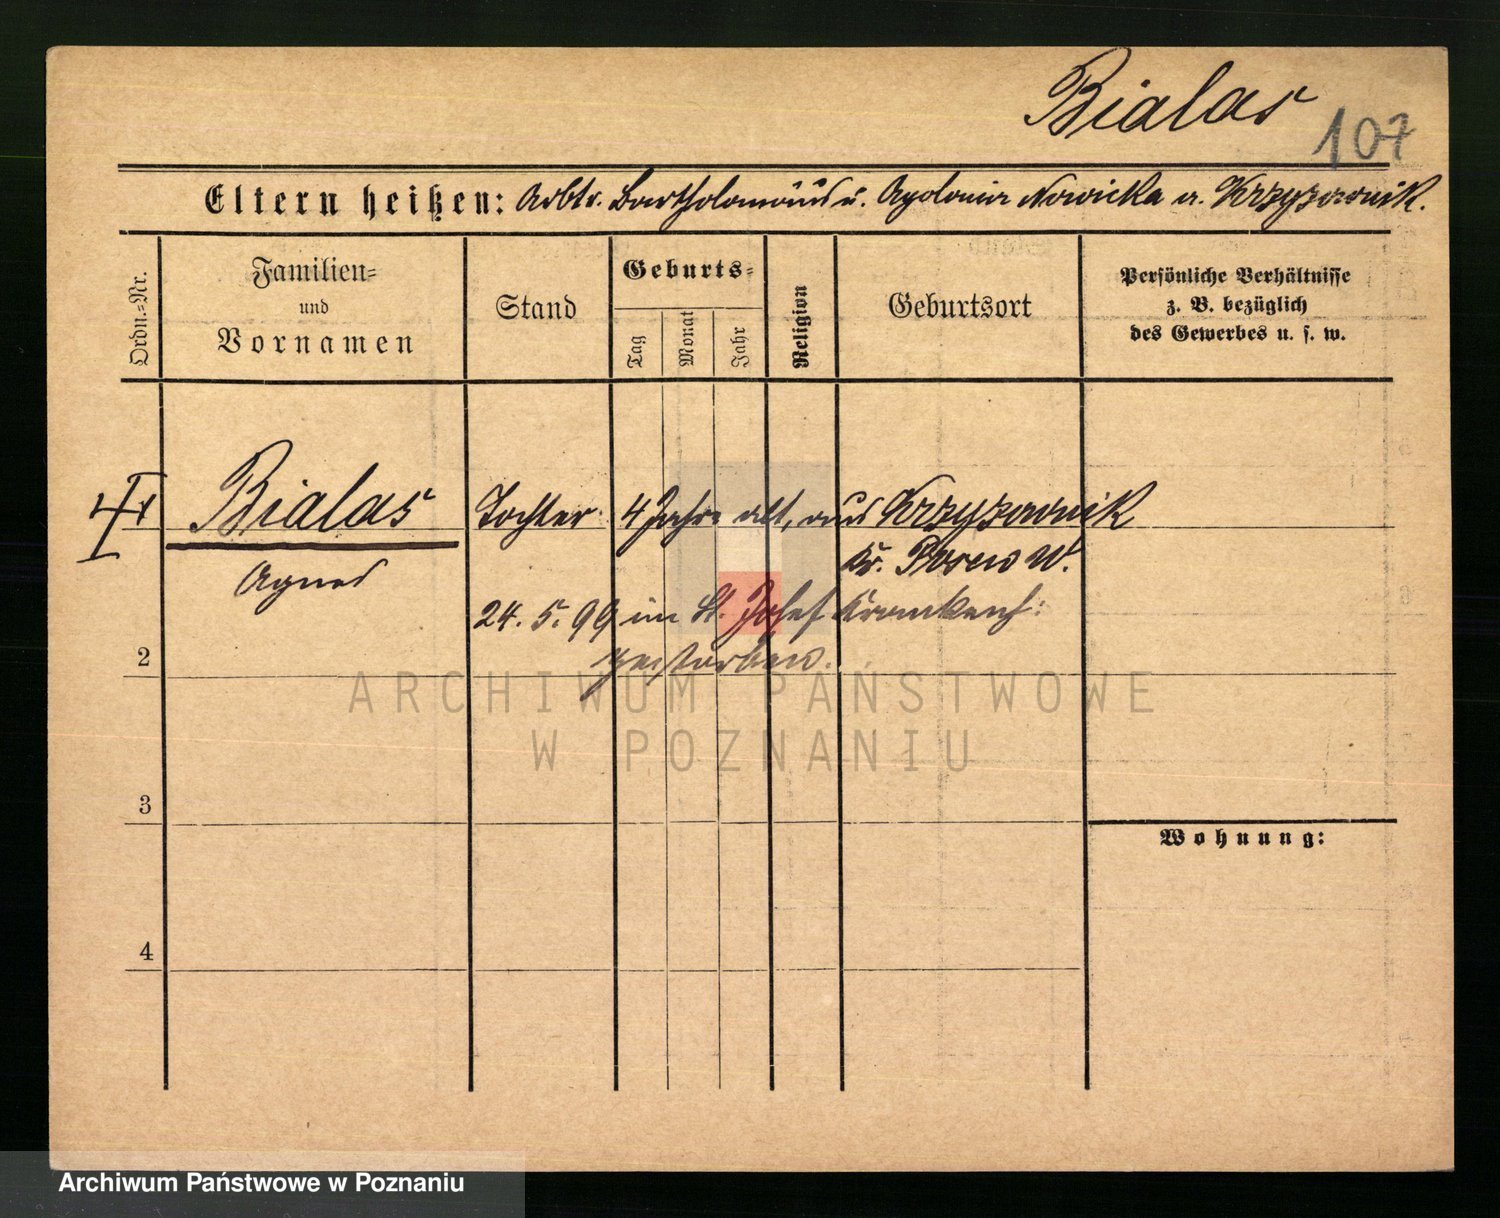 Bialas
107
Eltern heißen: Arbtr. Bartholomäus u. Apolonia Nowicka a. Krzyzownik.
Ordn.-Nr.
Familien-
und
Vornamen
Stand
Geburts-
Tag
Monat
Jahr
Religion
Geburtsort
Persönliche Verhältnisse
z. B. bezüglich
des Gewerbes u. s. w.
Bialas Tochter 4 Jahre alt, aus Krzyzownik
Agnes Kr. Posen W.
24. 5. 99 im St. Josef Krankenh:
2 gestorben.
ARCHIWUM PAŃSTWOWE
W POZNANIU
3
Wohnung:
4
Archiwum Państwowe w Poznaniu